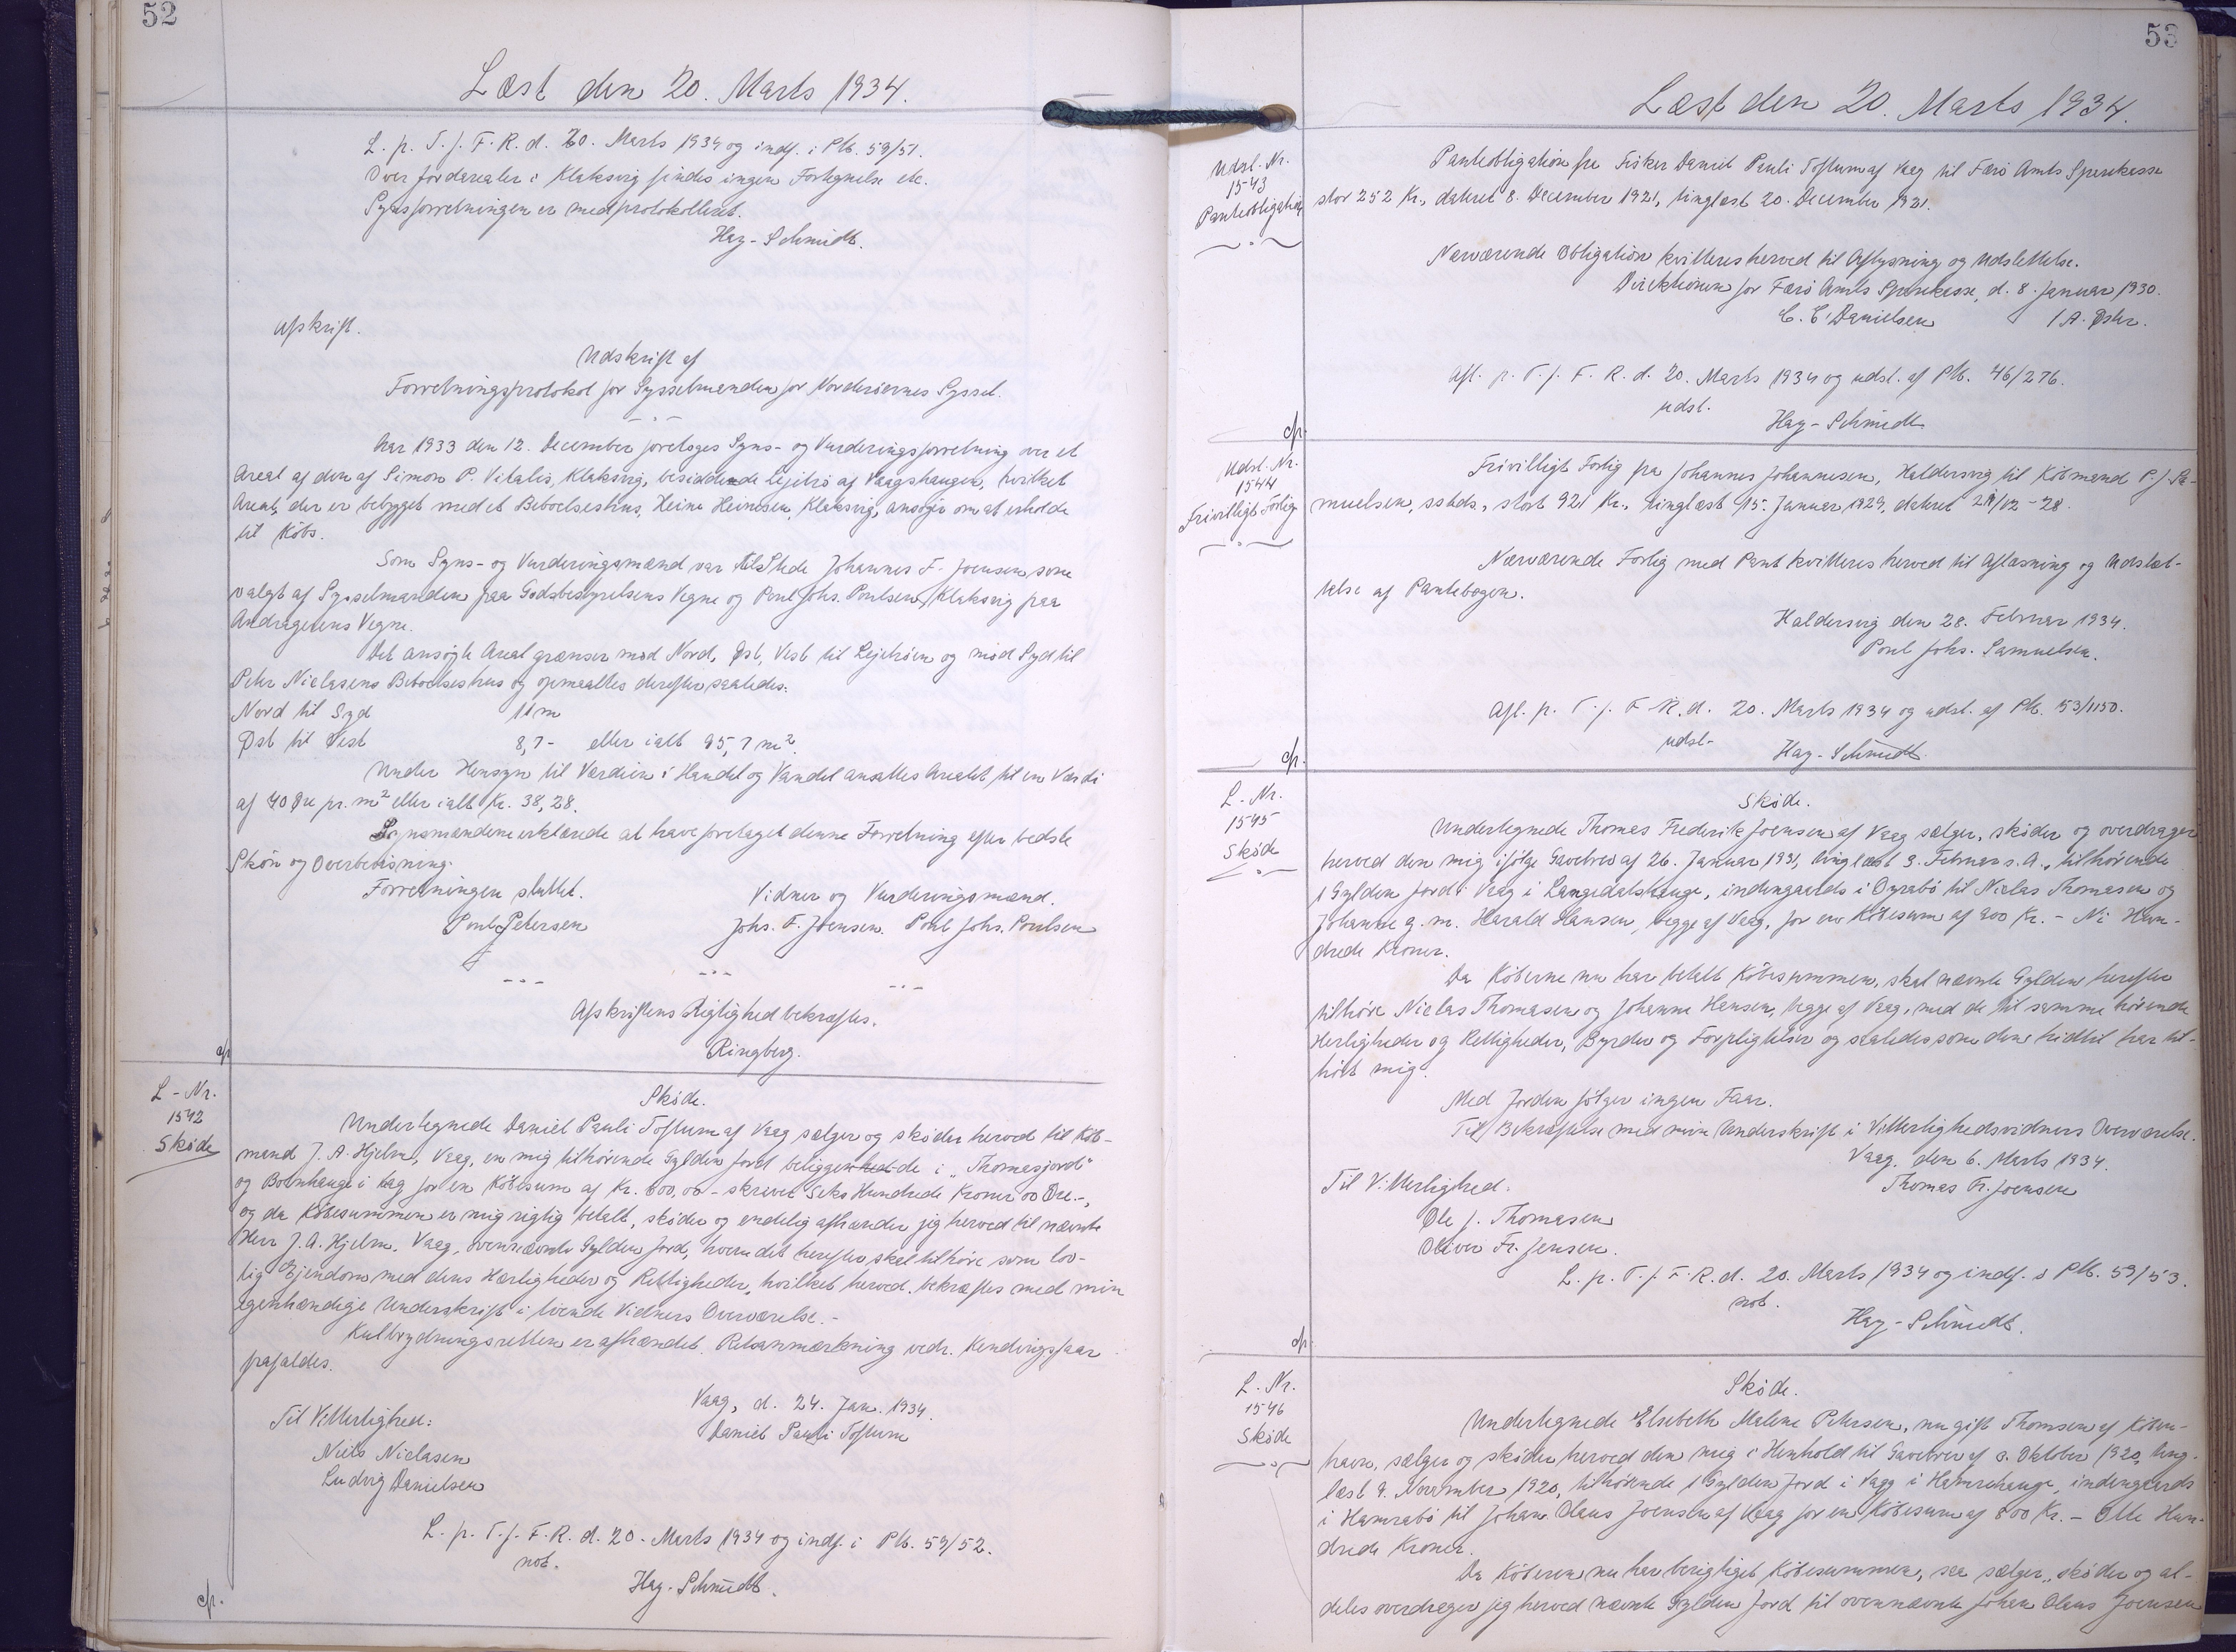 52
Læst den 20. Marts 1934.
L. p. T. f. F. R. d. 20. Marts 1934 og indf. i Ptb. 59/51.
Over Jordarealer i Klaksvig findes ingen Fortegnelse etc.
Synsforretningen er medprotokolleret.
Hag-Schmidt.
Afskrift.
Udskrift af
Forretningsprotokol for Sysselmanden for Norderøernes Syssel.
Aar 1933 den 12. December foretoges Syns- og Vurderingsforretning over et
Areal af den af Simon P. Vitalis, Klaksvig, besiddende Lejetrø af Vaagshaugen, hvilket
Areal, der er bebygget med et Beboelseshus, Heine Heinesen, Klaksvig, ansøger om at erholde
til Købs.
Som Syns- og Vurderingsmænd var tilstede Johannes F. Joensen som
valgt af Sysselmanden paa Godsbestyrelsens Vegne og Poul Johs. Poulsen, Klaksvig paa
Andragerens Vegne.
Det ansøgte Areal grænser mod Nord, Øst, Vest til Lejetrøen og mod Syd til
Peter Niclasens Beboelseshus og opmaaltes derefter saaledes:
Nord til Syd 11 m
Øst til Vest 8,7 - eller ialt 95,7 m².
Under Hensyn til Værdien i Handel og Vandel ansattes Arealet til en Værdi
af 40 Øre pr. m² eller ialt Kr. 38,28.
Synsmændene erklærede at have foretaget denne Forretning efter bedste
Skøn og Overbevisning.
Forretningen sluttet. Vidner og Vurderingsmænd.
Poul Petersen Johs. F. Joensen. Poul Johs. Poulsen
Afskriftens Rigtighed bekræftes.
Ringberg.
L-Nr.
1542
Skøde
Skøde.
Undertegnede Daniel Pauli Toftum af Vaag sælger og skøder herved til Køb-
mand J. A. Hjelm, Vaag, en mig tilhørende Gylden Jord beliggende i "Thomasjord"
og Botnhauge i Vaag for en Købesum af Kr. 600,00 - skrevet Seks Hundrede Kroner 00 Øre.-,
og da Købesummen er mig rigtig betalt, skøder og endelig afhænder jeg herved til nævnte
Herr J. A. Hjelm, Vaag, ovennævnte Gylden Jord, hvem det herefter skal tilhøre som lov-
lig Ejendom med dens Herligheder og Rettigheder, hvilket herved bekræftes med min
egenhændige Underskrift i tvende Vidners Overværelse.-
Kulbrydningsretten er afhændet. Retsanmærkning vedr. Kendingsfaar
frafaldes.
Vaag, d. 24. Jan. 1934.
Til Vitterlighed: Daniel Pauli Toftum
Niels Niclasen
Ludvig Danielsen
L. p. T. f. F. R. d. 20. Marts 1934 og indf. i Ptb. 59/52.
not.
Hag-Schmidt.
53
Læst den 20. Marts 1934.
Udsl. Nr.
1543
Panteobligation
Panteobligation fra Fisker Daniel Pauli Toftum af Vaag til Færø Amts Sparekasse
stor 252 Kr., dateret 8. December 1921, tinglæst 20. December 1921.
Nærværende Obligation kvitteres herved til Aflysning og Udslettelse.
Direktionen for Færø Amts Sparekasse, d. 8. Januar 1930.
C. C. Danielsen / A. Dahr.
Afl. p. T. f. F. R. d. 20. Marts 1934 og udsl. af Ptb. 46/276.
udsl.
Hag-Schmidt
Udsl. Nr.
1544
Frivilligt Forlig
Frivilligt Forlig fra Johannes Johannesen, Haldersvig til Købmand P. J. Sa-
muelsen, sstds., stort 921 Kr., tinglæst 15. Januar 1929, dateret 21/12-28.
Nærværende Forlig med Pant kvitteres herved til Aflæsning og Udslet-
telse af Pantebogen.
Haldersvig den 28. Februar 1934.
Poul Johs. Samuelsen.
Afl. p. T. f. F. R. d. 20. Marts 1934 og udsl. af Ptb. 53/1150.
udsl-
Hag-Schmidt
L-Nr.
1545
Skøde
Skøde.
Undertegnede Thomas Frederik Joensen af Vaag sælger, skøder og overdrager
herved den mig ifølge Gavebrev af 26. Januar 1931, tinglæst 3. Februar s. A., tilhørende
1 Gylden Jord i Vaag i Langedalshauge, indengaards i Dyrabø til Niclas Thomasen og
Johanne g. m. Harald Hansen, begge af Vaag, for en Købesum af 900 Kr. - Ni Hun-
drede Kroner.
Da Køberne nu har betalt Købesummen, skal nævnte Gylden herefter
tilhøre Niclas Thomasen og Johanne Hansen, begge af Vaag, med de til samme hørende
Herligheder og Rettigheder, Byrder og Forpligtelser og saaledes som den hidtil har til-
hørt mig.
Med Jorden følger ingen Faar.
Til Bekræftelse med min Underskrift i Vitterlighedsvidners Overværelse.
Vaag, den 6. Marts 1934.
Til Vitterlighed. Thomas Fr. Joensen
Ole J. Thomasen
Oliver Fr. Jensen.
L. p. T. f. F. R. d. 20. Marts 1934 og indf. i Ptb. 59/53.
not.
Hag-Schmidt.
L. Nr.
1546
Skøde
Skøde.
Undertegnede Elsebeth Malene Petersen, nu gift Thomsen af Køben-
havn, sælger og skøder herved den mig i Henhold til Gavebrev af Oktober 1920, ting-
læst 9. November 1920, tilhørende 1 Gylden Jord i Vaag i Hamrehauge, indengaards
i Hamrabø til Johan Olaus Joensen af Vaag for en Købesum af 800 Kr. - Otte Hun-
drede Kroner.
Da Køberen nu har berigtiget Købesummen, saa sælger, skøder og al-
deles overdrager jeg herved nævnte Gylden Jord til ovennævnte Johan Olaus Joensen